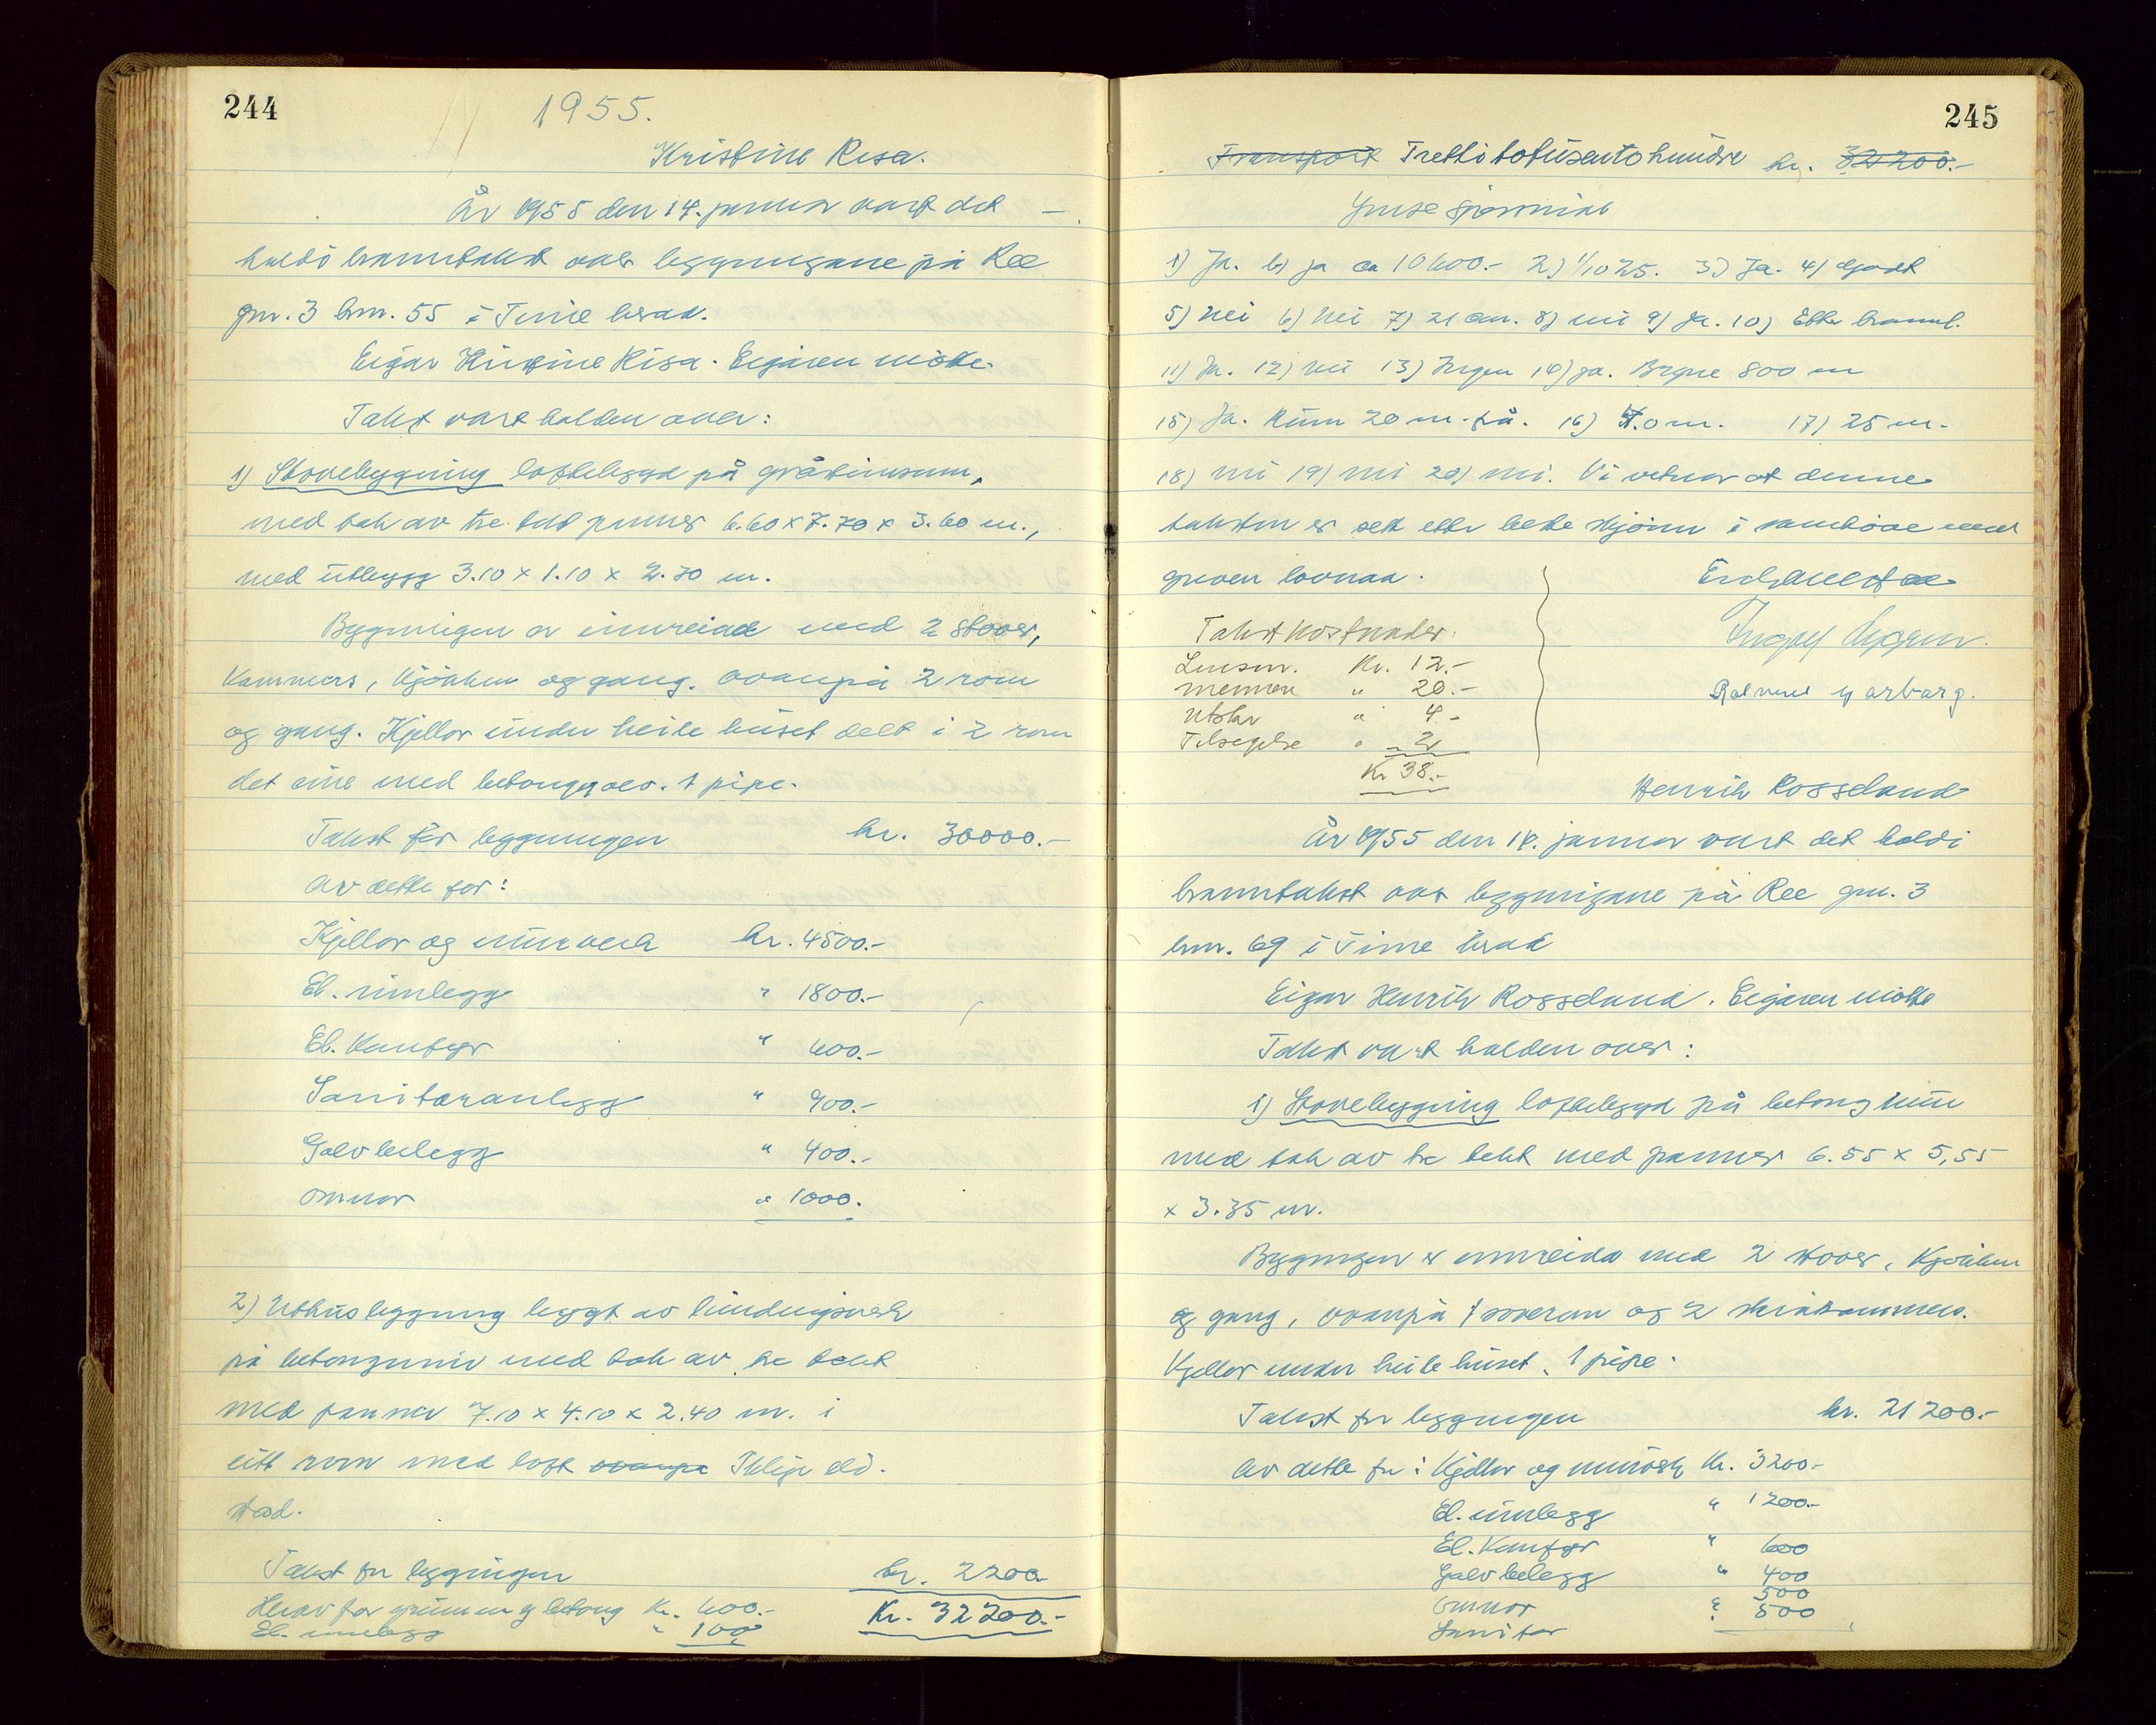 244
1955.
Kristine Risa.
År 1955 den 14. januar vart det
haldi branntakst over bygningane på Ree
gnr. 3 bnr. 55 i Time herad.
Eigar Kristine Risa. Eigaren møtte.
Takst vart halden over:
1) Stovebygning loftsbygd på gråsteinsmur,
med tak av tre tekt panner 6.60 x 7.70 x 3.60 m.,
med utbygg 3.10 x 1.10 x 2.70 m.
Bygningen er innreidd med 2 stover,
Kammers, kjøkken og gang. Ovanpå 2 rom
og gang. Kjellar under heile huset delt i 2 rom
det eine med betonggolv. 1 pipe.
Takst for bygningen kr. 30000.-
Av dette for:
Kjellar og murverk kr. 4500.-
El. innlegg " 1800.-
El. Komfyr " 600.-
Sanitæranlegg " 900.-
Golvbelegg " 400.-
Omnar " 1000.
2) Uthusbygning bygt av bindingsverk
på betongmur med tak av tre tekt
med panner 7.10 x 4.10 x 2.40 m. i
eitt rom med loft ovanpå Ikkje eld-
stad.
Takst for bygningen kr. 2200
Herav for grunnmur og betong Kr. 600.- Kr. 32200.-
El. innlegg " 100
245
Transport Trettitotusentohundre kr. 32200.-
Ymse spørsmål
1) Ja. b) ja ca 10600.- 2) 1/10 25. 3) Ja. 4) Godt
5) Nei 6) Nei 7) 21 cm. 8) nei 9) Ja. 10) Etter brannl.
11) Ja. 12) nei 13) Ingen 14) ja. Bryne 800 m
15) Ja. Kum 20 m. frå. 16) 4.0 m. 17) 25 m.
18) nei 19) nei 20) nei. Vi vitnar at denne
taksten er sett etter beste skjønn i samhøve med
greven lovnad.
Takstkostnader:
Lensm. Kr. 12.-
mennen " 20.-
Utskr " 4.-
Tilsegelse " 2
Kr 38.-
Henrik Rosseland
År 1955 den 14. januar vart det haldi
branntakst over bygningane på Ree gnr. 3
bnr. 69 i Time herad
Eigar Henrik Rosseland. Eigaren møtte
Takst vart halden over:
1) Stovebygning loftsbygd på betongmur
med tak av tre tekt med panner 6.55 x 5,55
x 3.35 m.
Bygningen er innreida med 2 stover, Kjøkken
og gang, ovanpå 1 soverom og 2 skråkammers.
Kjellar under heile huset. 1 pipe.
Takst for bygningen kr. 21200.-
Av dette for: Kjellar og murverk Kr. 3200.-
El. innlegg " 1200.-
El. Komfyr " 600
Golvbelegg " 400
Omnar " 500
Sanitær " 500